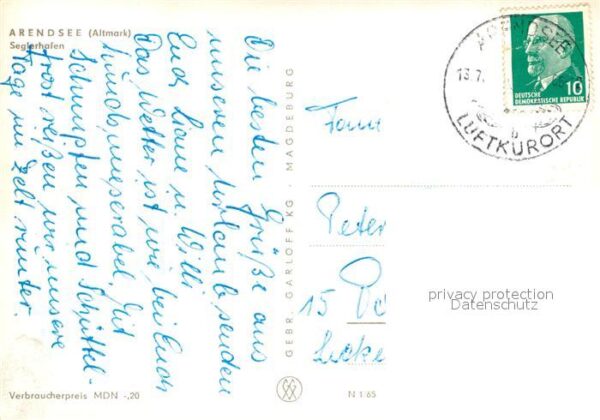 ARENDSEE (Altmark)
Seglerhafen
Die besten Grüße aus
unserem Urlaub senden
Euch Liane u. Willi
Das Wetter ist wie bei Euch
hundsmiserabel. Mit
Schnupfen und Schüttel-
frost reißen wir unsere
Tage im Zelt runter.
GEBR. GARLOFF KG · MAGDEBURG
Fam
Peter
15 Po
ARENDSEE
13.7.
b
LUFTKURORT
10
DEUTSCHE
DEMOKRATISCHE REPUBLIK
privacy protection
Datenschutz
Verbraucherpreis MDN -,20
N 1 65